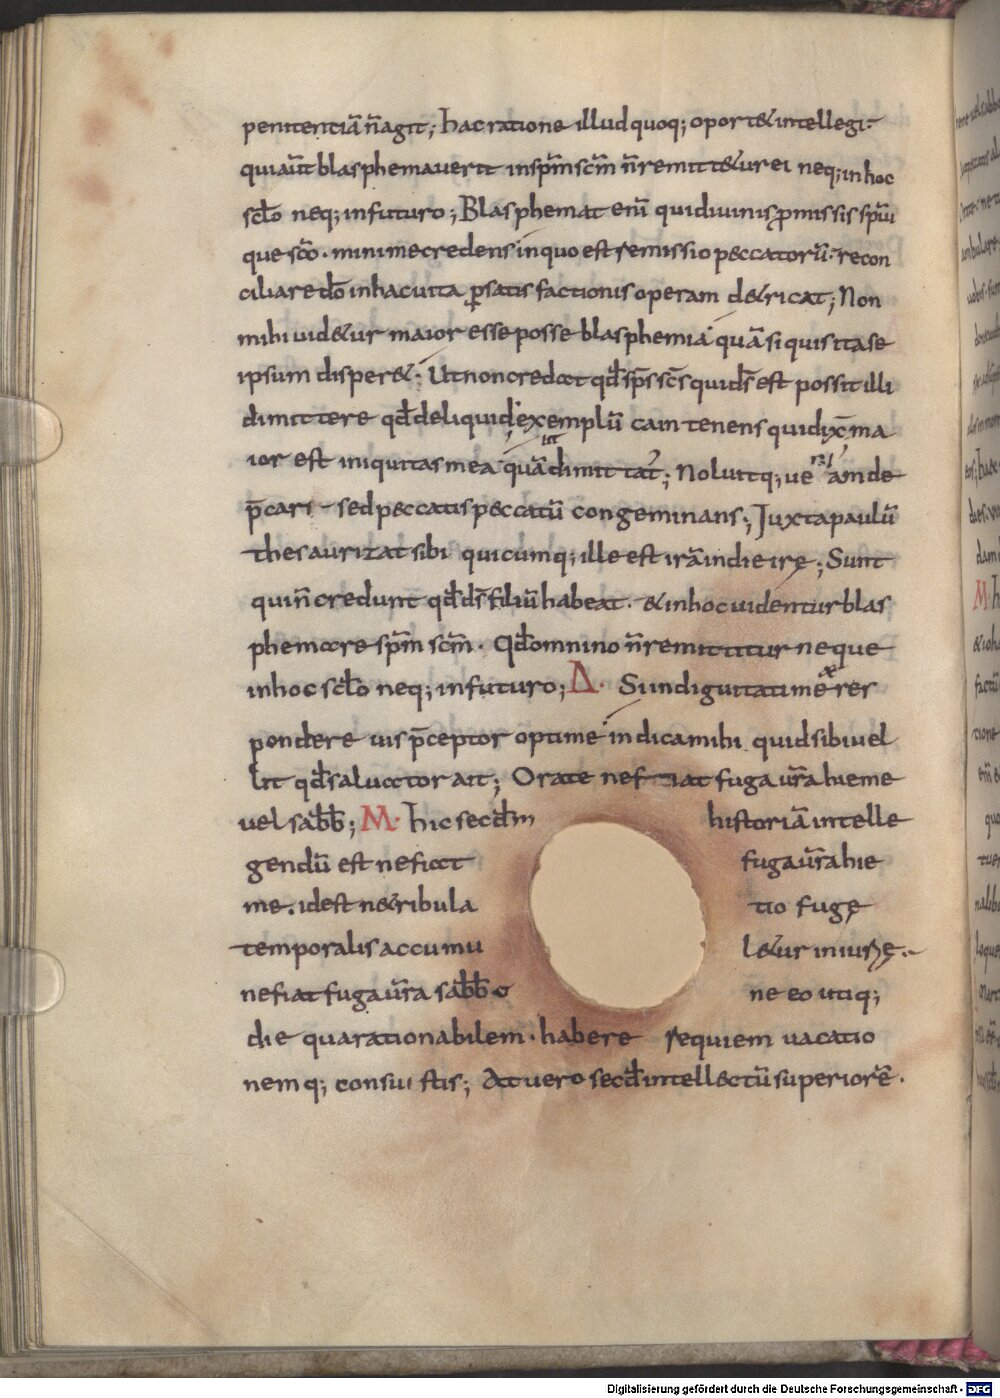 penitentiā n̄ agit; hac ratione illud quoq; oport& intellegi.
qui aūt blasphemaverit in sp̄m sc̄m n̄ remitt&ur ei neq; in hoc
sclo neq; in futuro; Blasphemat eni qui divinis promissis spiui
que sc̄o. minime credens in quo est remissio peccatorū. recon
ciliare dō in hac vita p satisfactionis operam d&ricat; Non
mihi vid&ur maior esse posse blasphemia quā si quis ita se
ipsum disper&. Ut non credat qđ sps scs qui ds est possit illi
dimittere qđ deliquid; exemplū cain tenens qui dix̄ ma
ior est iniquitas mea quā dimittat ut; Noluitq; ueniam de
p̄cari sed peccatis peccatū congeminans; Juxta paulū
thesaurizat sibi quicumq; ille est irā in die ire; Sunt
qui n̄ credunt qđ ds filiū habeat. & in hoc videntur blas
phemare sp̄m sc̄m. Qđ omnino n̄ remittitur neque
in hoc sclo neq; in futuro; Δ. Si indignitati meae res
pondere vis p̄ceptor optime indica mihi quid sibi vel
lit qđ salvator ait; Orate ne fiat fuga ura hieme
vel sabb; M. hic secđm historiā intelle
gendū est ne fiat fuga ura hie
me. id est ne tribula tio fuge
temporalis accumu l&ur iniurię.
ne fiat fuga ura sabbo ne eo utiq;
die qua rationabilem. habere requiem vacatio
nemq; consuistis; At vero secđ intellectū superiorē.
Digitalisierung gefördert durch die Deutsche Forschungsgemeinschaft - DFG